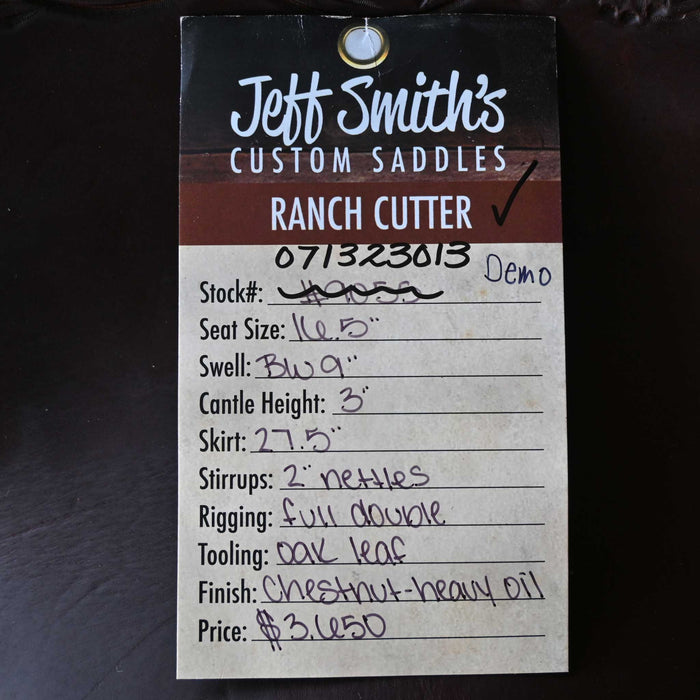 Jeff Smith's
CUSTOM SADDLES
RANCH CUTTER
071323013
Demo
Stock#: #9055
Seat Size: 16.5"
Swell: BW 9"
Cantle Height: 3"
Skirt: 27.5"
Stirrups: 2" nettles
Rigging: full double
Tooling: oak leaf
Finish: Chestnut-heavy oil
Price: $3,650